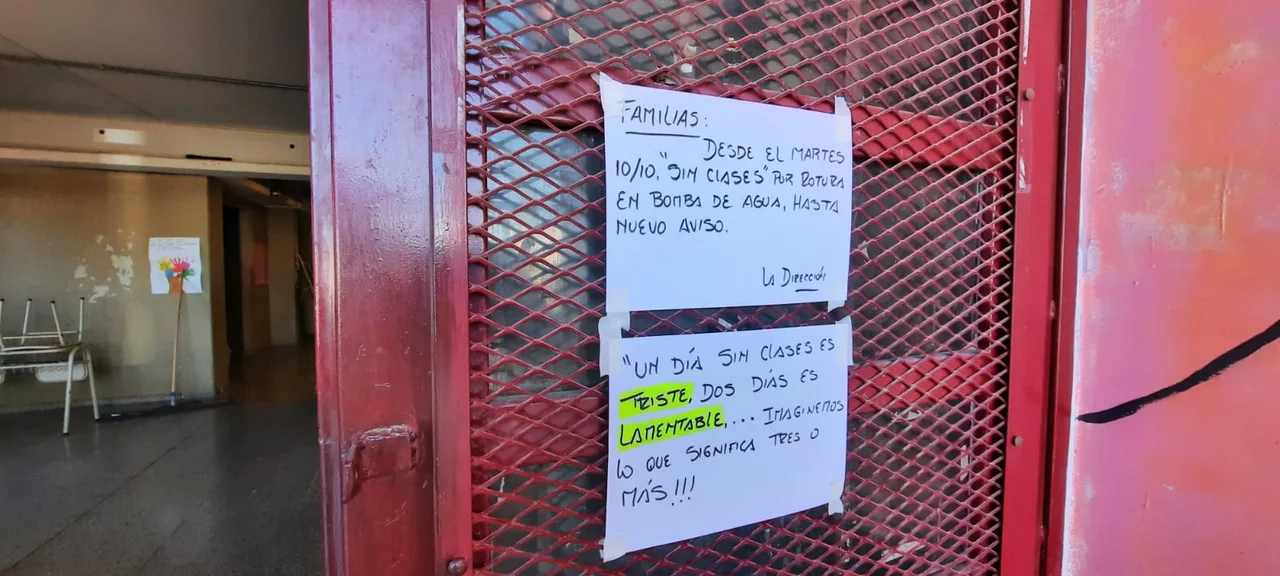 FAMILIAS:
DESDE EL MARTES
10/10, "SIN CLASES" POR ROTURA
EN BOMBA DE AGUA, HASTA
NUEVO AVISO.
LA DIRECCIÓN
"UN DÍA SIN CLASES ES
TRISTE, DOS DÍAS ES
LAMENTABLE,... IMAGINEMOS
LO QUE SIGNIFICA TRES O
MÁS!!!